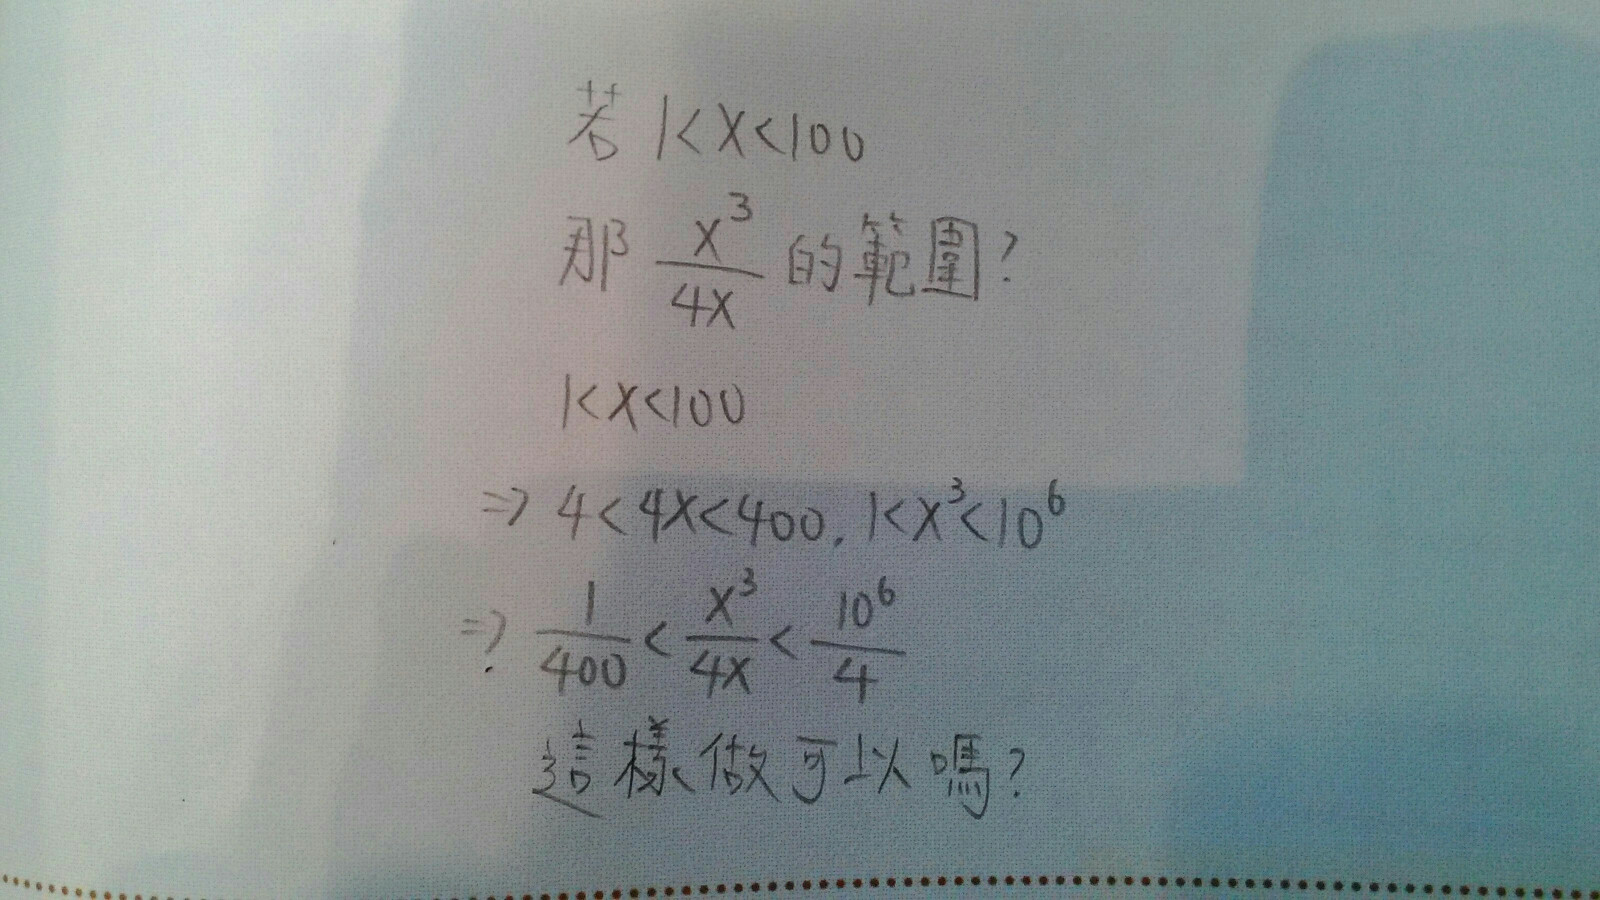 若 1<x<100
那 x³/4x 的範圍?
1<x<100
⇒ 4<4x<400, 1<x³<10⁶
⇒? 1/400 < x³/4x < 10⁶/4
這樣做可以嗎?